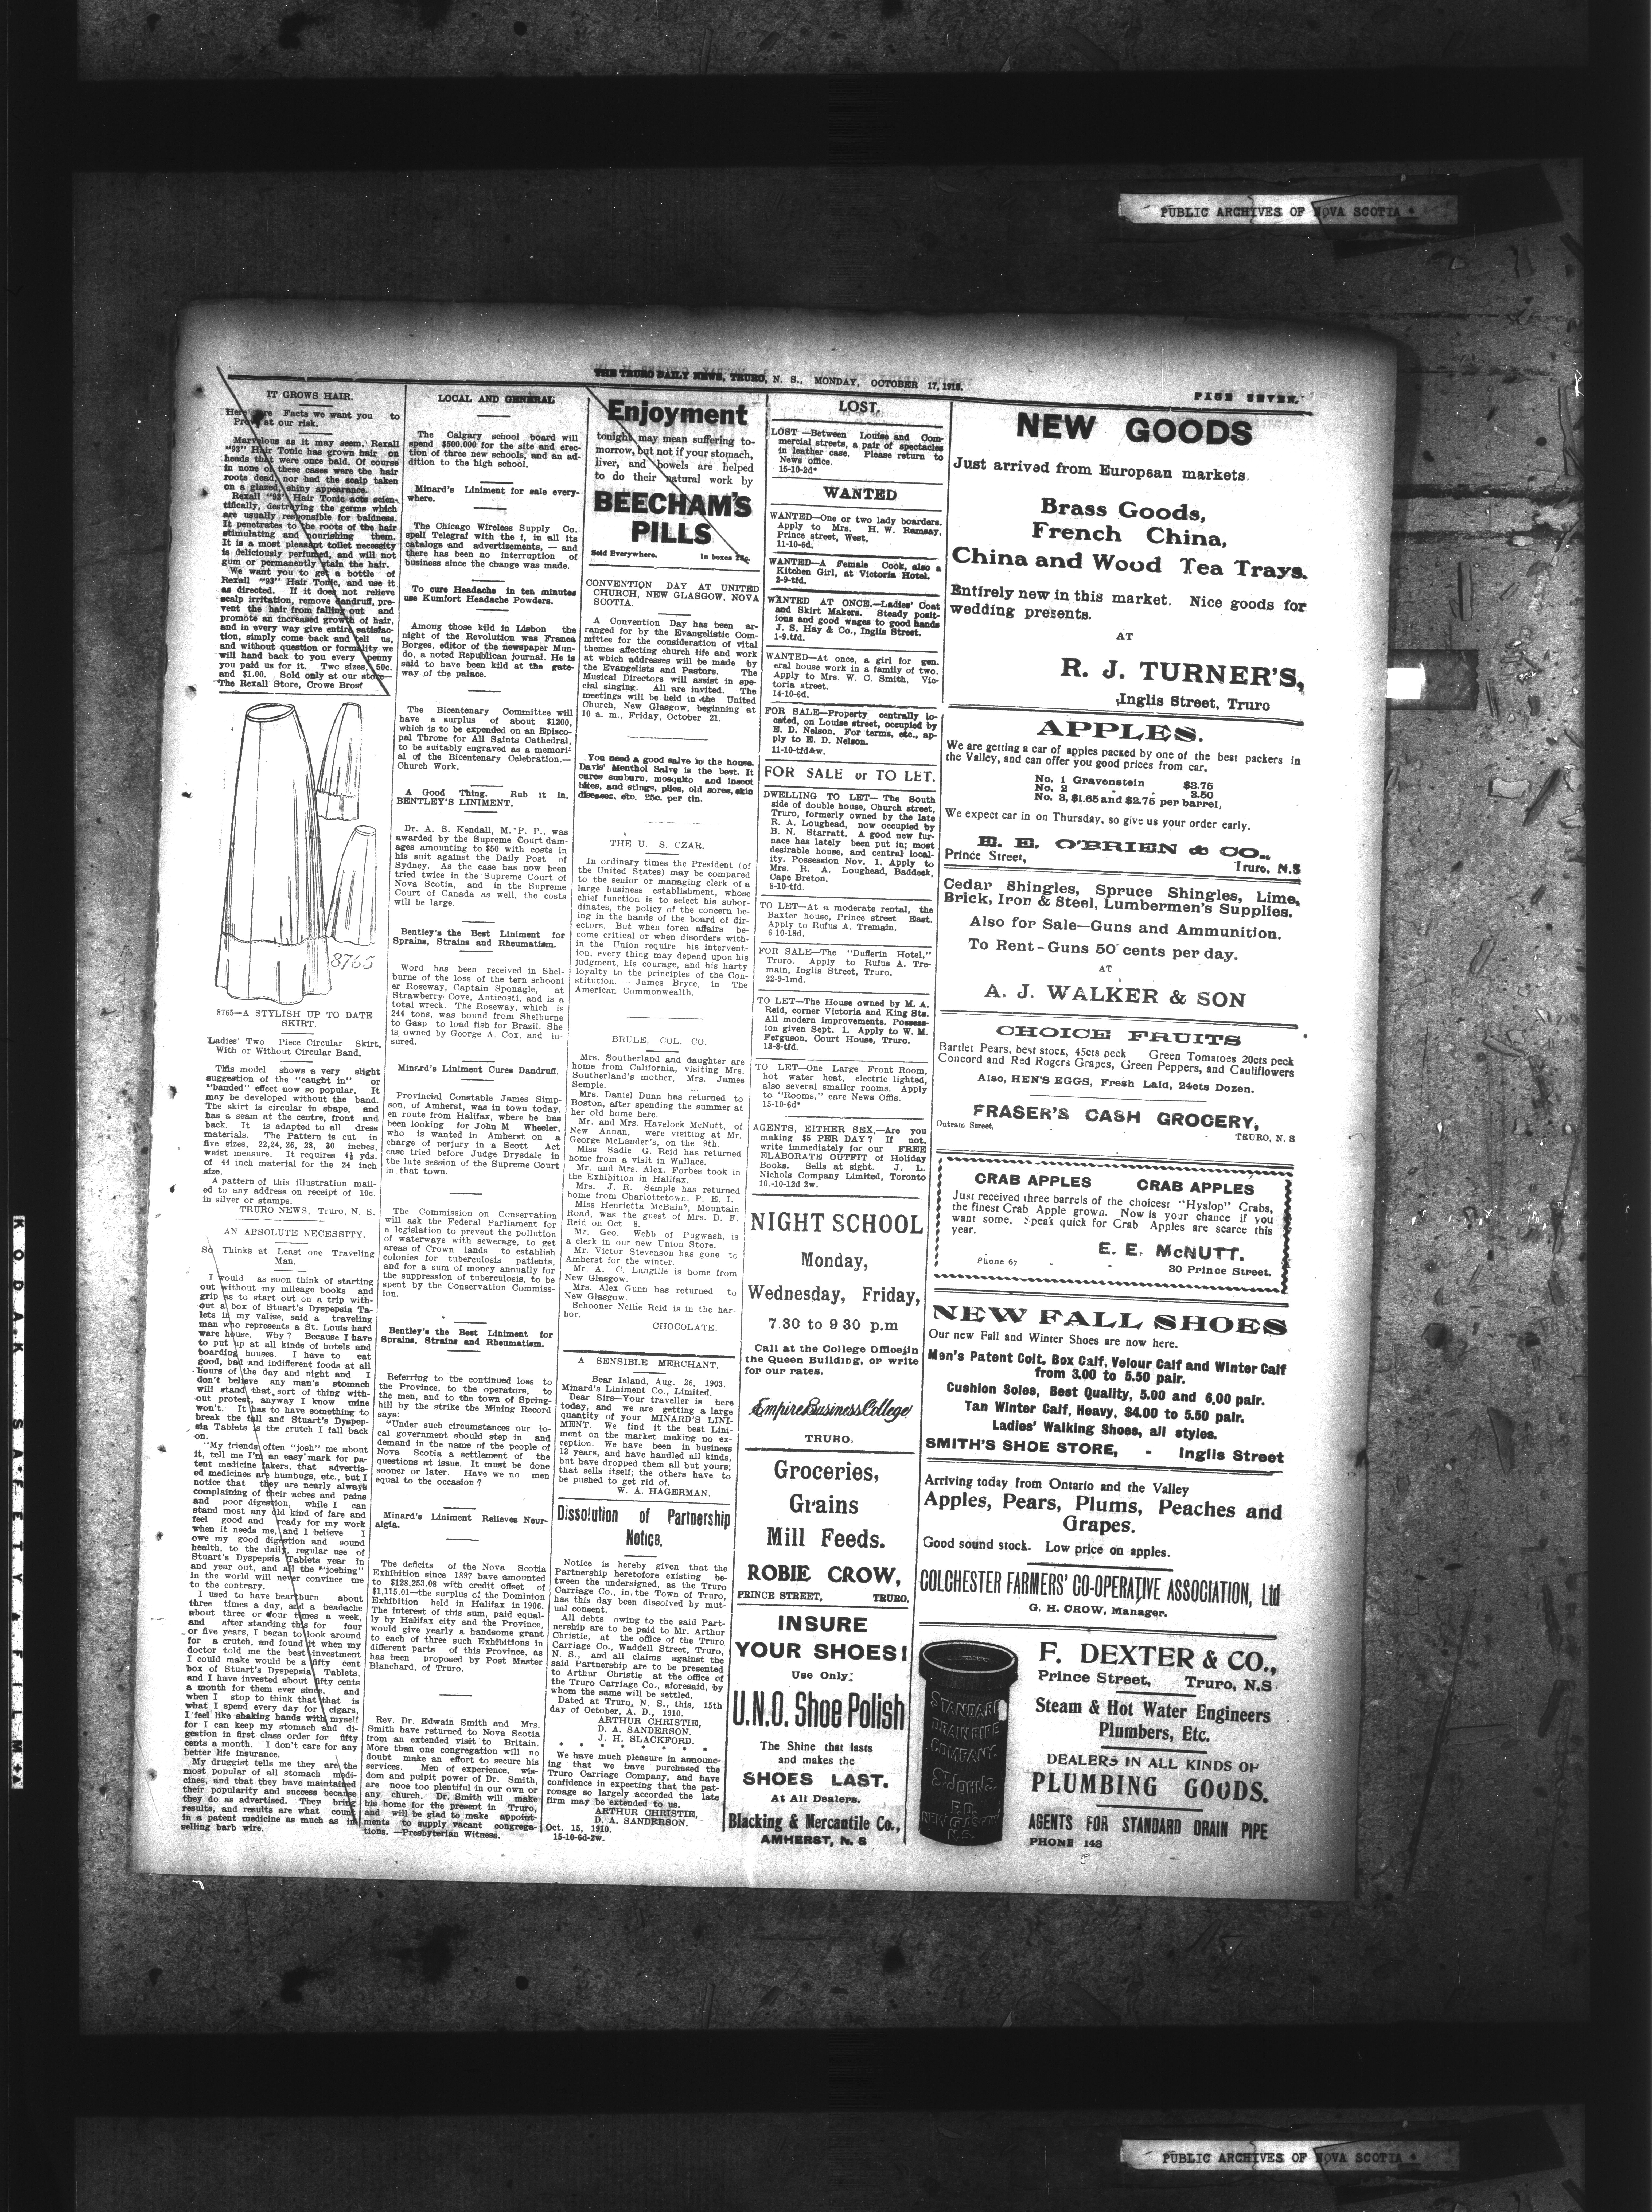 PUBLIC ARCHIVES OF NOVA SCOTIA
THE TRURO DAILY NEWS, TRURO, N. S., MONDAY, OCTOBER 17, 1910.
PAGE SEVEN.
IT GROWS HAIR.
Here are Facts we want you to
Prove at our risk.
Marvelous as it may seem, Rexall
"93" Hair Tonic has grown hair on
heads that were once bald. Of course
in none of these cases were the hair
roots dead, nor had the scalp taken
on a glazed, shiny appearance.
Rexall "93" Hair Tonic acts scien-
tifically, destroying the germs which
are usually responsible for baldness.
It penetrates to the roots of the hair
stimulating and nourishing them.
It is a most pleasant toilet necessity
is deliciously perfumed, and will not
gum or permanently stain the hair.
We want you to get a bottle of
Rexall "93" Hair Tonic, and use it
as directed. If it does not relieve
scalp irritation, remove dandruff, pre-
vent the hair from falling out and
promote an increased growth of hair,
and in every way give entire satisfac-
tion, simply come back and tell us,
and without question or formality we
will hand back to you every penny
you paid us for it. Two sizes, 50c.
and $1.00. Sold only at our store—
The Rexall Store, Crowe Bros.
8765
8765—A STYLISH UP TO DATE
SKIRT.
Ladies' Two Piece Circular Skirt,
With or Without Circular Band.
This model shows a very slight
suggestion of the "caught in" or
"banded" effect now so popular. It
may be developed without the band.
The skirt is circular in shape, and
has a seam at the centre, front and
back. It is adapted to all dress
materials. The Pattern is cut in
five sizes, 22,24, 26, 28, 30 inches,
waist measure. It requires 4½ yds.
of 44 inch material for the 24 inch
size.
A pattern of this illustration mail-
ed to any address on receipt of 10c.
in silver or stamps.
TRURO NEWS, Truro, N. S.
AN ABSOLUTE NECESSITY.
So Thinks at Least one Traveling
Man.
I would as soon think of starting
out without my mileage books and
grip as to start out on a trip with-
out a box of Stuart's Dyspepsia Ta-
lets in my valise, said a traveling
man who represents a St. Louis hard
ware house. Why? Because I have
to put up at all kinds of hotels and
boarding houses. I have to eat
good, bad and indifferent foods at all
hours of the day and night and I
don't believe any man's stomach
will stand that sort of thing with-
out protest, anyway I know mine
won't. It has to have something to
break the fall and Stuart's Dyspep-
sia Tablets is the crutch I fall back
on.
"My friends often "josh" me about
it, tell me I'm an easy mark for pa-
tent medicine takers, that advertis-
ed medicines are humbugs, etc., but I
notice that they are nearly always
complaining of their aches and pains
and poor digestion, while I can
stand most any old kind of fare and
feel good and ready for my work
when it needs me, and I believe I
owe my good digestion and sound
health, to the daily, regular use of
Stuart's Dyspepsia Tablets year in
and year out, and all the "joshing"
in the world will never convince me
to the contrary.
I used to have heartburn about
three times a day, and a headache
about three or four times a week,
and after standing this for four
or five years, I began to look around
for a crutch, and found it when my
doctor told me the best investment
I could make would be a fifty cent
box of Stuart's Dyspepsia Tablets,
and I have invested about fifty cents
a month for them ever since. and
when I stop to think that that is
what I spend every day for cigars,
I feel like shaking hands with myself
for I can keep my stomach and di-
gestion in first class order for fifty
cents a month. I don't care for any
better life insurance.
My druggist tells me they are the
most popular of all stomach medi-
cines, and that they have maintained
their popularity and success because
they do as advertised. They bring
results, and results are what count
in a patent medicine as much as in
selling barb wire.
LOCAL AND GENERAL
The Calgary school board will
spend $500.000 for the site and erec-
tion of three new schools, and an ad-
dition to the high school.
Minard's Liniment for sale every-
where.
The Chicago Wireless Supply Co.
spell Telegraf with the f, in all its
catalogs and advertizements, — and
there has been no interruption of
business since the change was made.
To cure Headache in ten minutes
use Kumfort Headache Powders.
Among those kild in Lisbon the
night of the Revolution was Franca
Borges, editor of the newspaper Mun-
do, a noted Republican journal. He is
said to have been kild at the gate-
way of the palace.
The Bicentenary Committee will
have a surplus of about $1200,
which is to be expended on an Episco-
pal Throne for All Saints Cathedral,
to be suitably engraved as a memori-
al of the Bicentenary Celebration.—
Church Work.
A Good Thing. Rub it in.
BENTLEY'S LINIMENT.
Dr. A. S. Kendall, M. P. P., was
awarded by the Supreme Court dam-
ages amounting to $50 with costs in
his suit against the Daily Post of
Sydney. As the case has now been
tried twice in the Supreme Court of
Nova Scotia, and in the Supreme
Court of Canada as well, the costs
will be large.
Bentley's the Best Liniment for
Sprains, Strains and Rheumatism.
Word has been received in Shel-
burne of the loss of the tern schooni
er Roseway, Captain Sponagle, at
Strawberry Cove, Anticosti, and is a
total wreck. The Roseway, which is
244 tons, was bound from Shelburne
to Gasp to load fish for Brazil. She
is owned by George A. Cox, and in-
sured.
Minard's Liniment Cures Dandruff.
Provincial Constable James Simp-
son, of Amherst, was in town today,
en route from Halifax, where he has
been looking for John M Wheeler,
who is wanted in Amherst on a
charge of perjury in a Scott Act
case tried before Judge Drysdale in
the late session of the Supreme Court
in that town.
The Commission on Conservation
will ask the Federal Parliament for
a legislation to prevent the pollution
of waterways with sewerage, to get
areas of Crown lands to establish
colonies for tuberculosis patients,
and for a sum of money annually for
the suppression of tuberculosis, to be
spent by the Conservation Commiss-
ion.
Bentley's the Best Liniment for
Sprains, Strains and Rheumatism.
Referring to the continued loss to
the Province, to the operators, to
the men, and to the town of Spring-
hill by the strike the Mining Record
says:
"Under such circumstances our lo-
cal government should step in and
demand in the name of the people of
Nova Scotia a settlement of the
questions at issue. It must be done
sooner or later. Have we no men
equal to the occasion?
Minard's Liniment Relieves Neur-
algia.
The deficits of the Nova Scotia
Exhibition since 1897 have amounted
to $128,253.08 with credit offset of
$1,115.01—the surplus of the Dominion
Exhibition held in Halifax in 1906.
The interest of this sum, paid equal-
ly by Halifax city and the Province,
would give yearly a handsome grant
to each of three such Exhibitions in
different parts of this Province, as
has been proposed by Post Master
Blanchard, of Truro.
Rev. Dr. Edwain Smith and Mrs.
Smith have returned to Nova Scotia
from an extended visit to Britain.
More than one congregation will no
doubt make an effort to secure his
services. Men of experience, wis-
dom and pulpit power of Dr. Smith,
are none too plentiful in our own or
any church. Dr. Smith will make
his home for the present in Truro,
and will be glad to make appoint-
ments to supply vacant congrega-
tions. —Presbyterian Witness.
Enjoyment
tonight may mean suffering to-
morrow, but not if your stomach,
liver, and bowels are helped
to do their natural work by
BEECHAM'S
PILLS
Sold Everywhere. In boxes 25c.
CONVENTION DAY AT UNITED
CHURCH, NEW GLASGOW, NOVA
SCOTIA.
A Convention Day has been ar-
ranged for by the Evangelistic Com-
mittee for the consideration of vital
themes affecting church life and work
at which addresses will be made by
the Evangelists and Pastors. The
Musical Directors will assist in spe-
cial singing. All are invited. The
meetings will be held in the United
Church, New Glasgow, beginning at
10 a. m., Friday, October 21.
You need a good salve in the house.
Davis' Menthol Salve is the best. It
cures sunburn, mosquito and insect
bites, and stings, piles, old sores, skin
diseases, etc. 25c. per tin.
THE U. S. CZAR.
In ordinary times the President (of
the United States) may be compared
to the senior or managing clerk of a
large business establishment, whose
chief function is to select his subor-
dinates, the policy of the concern be-
ing in the hands of the board of dir-
ectors. But when foren affairs be-
come critical or when disorders with-
in the Union require his intervent-
ion, every thing may depend upon his
judgment, his courage, and his harty
loyalty to the principles of the Con-
stitution. — James Bryce, in The
American Commonwealth.
BRULE, COL. CO.
Mrs. Southerland and daughter are
home from California, visiting Mrs.
Southerland's mother, Mrs. James
Semple.
Mrs. Daniel Dunn has returned to
Boston, after spending the summer at
her old home here.
Mr. and Mrs. Havelock McNutt, of
New Annan, were visiting at Mr.
George McLander's, on the 9th.
Miss Sadie G. Reid has returned
home from a visit in Wallace.
Mr. and Mrs. Alex. Forbes took in
the Exhibition in Halifax.
Mrs. J. R. Semple has returned
home from Charlottetown, P. E. I.
Miss Henrietta McBain?, Mountain
Road, was the guest of Mrs. D. F.
Reid on Oct. 8.
Mr. Geo. Webb of Pugwash, is
a clerk in our new Union Store.
Mr. Victor Stevenson has gone to
Amherst for the winter.
Mr. A. C. Langille is home from
New Glasgow.
Mrs. Alex Gunn has returned to
New Glasgow.
Schooner Nellie Reid is in the har-
bor.
CHOCOLATE.
A SENSIBLE MERCHANT.
Bear Island, Aug. 26, 1903.
Minard's Liniment Co., Limited.
Dear Sirs—Your traveller is here
today, and we are getting a large
quantity of your MINARD'S LINI-
MENT. We find it the best Lini-
ment on the market making no ex-
ception. We have been in business
13 years, and have handled all kinds,
but have dropped them all but yours;
that sells itself; the others have to
be pushed to get rid of.
W. A. HAGERMAN.
Dissolution of Partnership
Notice.
Notice is hereby given that the
Partnership heretofore existing be-
tween the undersigned, as the Truro
Carriage Co., in the Town of Truro,
has this day been dissolved by mut-
ual consent.
All debts owing to the said Part-
nership are to be paid to Mr. Arthur
Christie, at the office of the Truro
Carriage Co., Waddell Street, Truro,
N. S., and all claims against the
said Partnership are to be presented
to Arthur Christie at the office of
the Truro Carriage Co., aforesaid, by
whom the same will be settled.
Dated at Truro, N. S., this, 15th
day of October, A. D., 1910.
ARTHUR CHRISTIE,
D. A. SANDERSON.
J. H. SLACKFORD.
* * * * * * * *
We have much pleasure in announc-
ing that we have purchased the
Truro Carriage Company, and have
confidence in expecting that the pat-
ronage so largely accorded the late
firm may be extended to us.
ARTHUR CHRISTIE,
D. A. SANDERSON.
Oct. 15, 1910.
15-10-6d-2w.
LOST.
LOST —Between Louise and Com-
mercial streets, a pair of spectacles
in leather case. Please return to
News office.
15-10-2d*
WANTED
WANTED—One or two lady boarders.
Apply to Mrs. H. W. Ramsay,
Prince street, West.
11-10-6d.
WANTED—A Female Cook, also a
Kitchen Girl, at Victoria Hotel.
2-9-tfd.
WANTED AT ONCE.—Ladies' Coat
and Skirt Makers. Steady posit-
ions and good wages to good hands
J. S. Hay & Co., Inglis Street.
1-9.tfd.
WANTED—At once, a girl for gen.
eral house work in a family of two.
Apply to Mrs. W. C. Smith, Vic-
toria street.
14-10-6d.
FOR SALE—Property centrally lo-
cated, on Louise street, occupied by
E. D. Nelson. For terms, etc., ap-
ply to E. D. Nelson.
11-10-tfd&w.
FOR SALE or TO LET.
DWELLING TO LET— The South
side of double house, Church street,
Truro, formerly owned by the late
R. A. Loughead, now occupied by
B. N. Starratt. A good new fur-
nace has lately been put in; most
desirable house, and central local-
ity. Possession Nov. 1. Apply to
Mrs. R. A. Loughead, Baddeck,
Cape Breton.
8-10-tfd.
TO LET—At a moderate rental, the
Baxter house, Prince street East.
Apply to Rufus A. Tremain.
6-10-18d.
FOR SALE—The "Dufferin Hotel,"
Truro. Apply to Rufus A. Tre-
main, Inglis Street, Truro.
22-9-1md.
TO LET—The House owned by M. A.
Reid, corner Victoria and King Sts.
All modern improvements. Possess-
ion given Sept. 1. Apply to W. M.
Ferguson, Court House, Truro.
13-8-tfd.
TO LET—One Large Front Room,
hot water heat, electric lighted,
also several smaller rooms. Apply
to "Rooms," care News Offis.
15-10-6d*
AGENTS, EITHER SEX,—Are you
making $5 PER DAY? If not,
write immediately for our FREE
ELABORATE OUTFIT of Holiday
Books. Sells at sight. J. L.
Nichols Company Limited, Toronto
10.-10-12d 2w.
NIGHT SCHOOL
Monday,
Wednesday, Friday,
7.30 to 9 30 p.m
Call at the College Office in
the Queen Building, or write
for our rates.
Empire Business College
TRURO.
Groceries,
Grains
Mill Feeds.
ROBIE CROW,
PRINCE STREET, TRURO.
INSURE
YOUR SHOES!
Use Only:
U.N.O. Shoe Polish
The Shine that lasts
and makes the
SHOES LAST.
At All Dealers.
Blacking & Mercantile Co.,
AMHERST, N. S
NEW GOODS
Just arrived from European markets
Brass Goods,
French China,
China and Wood Tea Trays.
Entirely new in this market. Nice goods for
wedding presents.
AT
R. J. TURNER'S,
Inglis Street, Truro
APPLES.
We are getting a car of apples packed by one of the best packers in
the Valley, and can offer you good prices from car.
No. 1 Gravenstein $3.75
No. 2 " " 3.50
No. 3, $1.65 and $2.75 per barrel,
We expect car in on Thursday, so give us your order early.
E. E. O'BRIEN & CO.,
Prince Street, Truro, N.S
Cedar Shingles, Spruce Shingles, Lime,
Brick, Iron & Steel, Lumbermen's Supplies.
Also for Sale—Guns and Ammunition.
To Rent—Guns 50 cents per day.
AT
A. J. WALKER & SON
CHOICE FRUITS
Bartlet Pears, best stock, 45cts peck Green Tomatoes 20cts peck
Concord and Red Rogers Grapes, Green Peppers, and Cauliflowers
Also, HEN'S EGGS, Fresh Laid, 24cts Dozen.
FRASER'S CASH GROCERY,
Outram Street, TRURO, N. S
CRAB APPLES CRAB APPLES
Just received three barrels of the choicest "Hyslop" Crabs,
the finest Crab Apple grown. Now is your chance if you
want some. Speak quick for Crab Apples are scarce this
year.
E. E. McNUTT.
Phone 67 30 Prince Street.
NEW FALL SHOES
Our new Fall and Winter Shoes are now here.
Men's Patent Colt, Box Calf, Velour Calf and Winter Calf
from 3.00 to 5.50 pair.
Cushion Soles, Best Quality, 5.00 and 6.00 pair.
Tan Winter Calf, Heavy, $4.00 to 5.50 pair.
Ladies' Walking Shoes, all styles.
SMITH'S SHOE STORE, - Inglis Street
Arriving today from Ontario and the Valley
Apples, Pears, Plums, Peaches and
Grapes.
Good sound stock. Low price on apples.
COLCHESTER FARMERS' CO-OPERATIVE ASSOCIATION, Ltd
G. H. CROW, Manager.
STANDARD
DRAIN PIPE
COMPANY.
St JOHNS.
P.Q.
NEW GLASGOW
N.S.
F. DEXTER & CO.,
Prince Street, Truro, N.S
Steam & Hot Water Engineers
Plumbers, Etc.
DEALERS IN ALL KINDS OF
PLUMBING GOODS.
AGENTS FOR STANDARD DRAIN PIPE
PHONE 148
KODAK SAFETY FILM
PUBLIC ARCHIVES OF NOVA SCOTIA